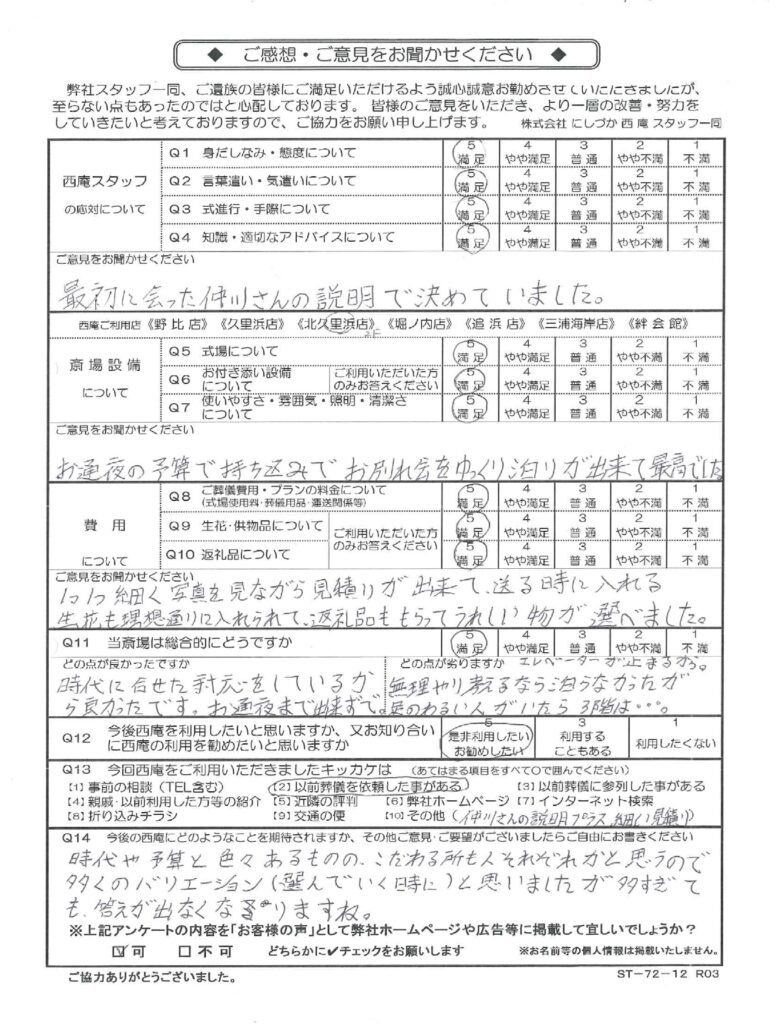 ◆ ご感想・ご意見をお聞かせください ◆
弊社スタッフ一同、ご遺族の皆様にご満足いただけるよう誠心誠意お勤めさせていただきましたが、
至らない点もあったのではと心配しております。皆様のご意見をいただき、より一層の改善・努力を
していきたいと考えておりますので、ご協力をお願い申し上げます。 株式会社 にしづか 西庵 スタッフ一同
西庵スタッフ
の応対について
Q1 身だしなみ・態度について 5 満足 4 やや満足 3 普通 2 やや不満 1 不満
Q2 言葉遣い・気遣いについて 5 満足 4 やや満足 3 普通 2 やや不満 1 不満
Q3 式進行・手際について 5 満足 4 やや満足 3 普通 2 やや不満 1 不満
Q4 知識・適切なアドバイスについて 5 満足 4 やや満足 3 普通 2 やや不満 1 不満
ご意見をお聞かせください
最初に会った仲川さんの説明で決めていました。
西庵ご利用店《野比店》《久里浜店》《北久里浜店》《堀ノ内店》《追浜店》《三浦海岸店》《絆会館》
2F
斎場設備
について
Q5 式場について 5 満足 4 やや満足 3 普通 2 やや不満 1 不満
Q6 お付き添い設備について ご利用いただいた方のみお答えください 5 満足 4 やや満足 3 普通 2 やや不満 1 不満
Q7 使いやすさ・雰囲気・照明・清潔さについて 5 満足 4 やや満足 3 普通 2 やや不満 1 不満
ご意見をお聞かせください
お通夜の予算で持ち込みでお別れ会をゆっくり泊りが出来て最高でした
費用
について
Q8 ご葬儀費用・プランの料金について (式場使用料・葬儀用品・運送関係等) 5 満足 4 やや満足 3 普通 2 やや不満 1 不満
Q9 生花・供物品について ご利用いただいた方のみお答えください 5 満足 4 やや満足 3 普通 2 やや不満 1 不満
Q10 返礼品について 5 満足 4 やや満足 3 普通 2 やや不満 1 不満
ご意見をお聞かせください
1つ1つ細く写真を見ながら見積りが出来て、送る時に入れる
生花も理想通りに入れられて、返礼品ももらってうれしい物が選べました。
Q11 当斎場は総合的にどうですか 5 満足 4 やや満足 3 普通 2 やや不満 1 不満
どの点が良かったですか
時代に合せた対応をしているか
ら良かったです。お通夜まで出来ずで。
どの点が劣りますか エレベーターが止まるから。
無理やり考えるなら泊らなかったが
足のわるい人がいたら3階は・・・。
Q12 今後西庵を利用したいと思いますか、又お知り合いに西庵の利用を勧めたいと思いますか 5 是非利用したいお勧めしたい 3 利用することもある 1 利用したくない
Q13 今回西庵をご利用いただきましたキッカケは (あてはまる項目をすべて○で囲んでください)
[1] 事前の相談(TEL含む) [2] 以前葬儀を依頼した事がある [3] 以前葬儀に参列した事がある
[4] 親戚・以前利用した方等の紹介 [5] 近隣の評判 [6] 弊社ホームページ [7] インターネット検索
[8] 折り込みチラシ [9] 交通の便 [10] その他(仲川さんの説明プラス、細い見積り)
Q14 今後の西庵にどのようなことを期待されますか、その他ご意見・ご要望がございましたらご自由にお書きください
時代や予算と色々あるものの、こだわる所も人それぞれかと思うので
多くのバリエーション(選んでいく時に)と思いましたが多すぎて
も、答えが出なくなりますね。
※上記アンケートの内容を「お客様の声」として弊社ホームページや広告等に掲載して宜しいでしょうか?
☑可 □不可 どちらかに✔チェックをお願いします ※お名前等の個人情報は掲載いたしません。
ご協力ありがとうございました。 ST-72-12 R03